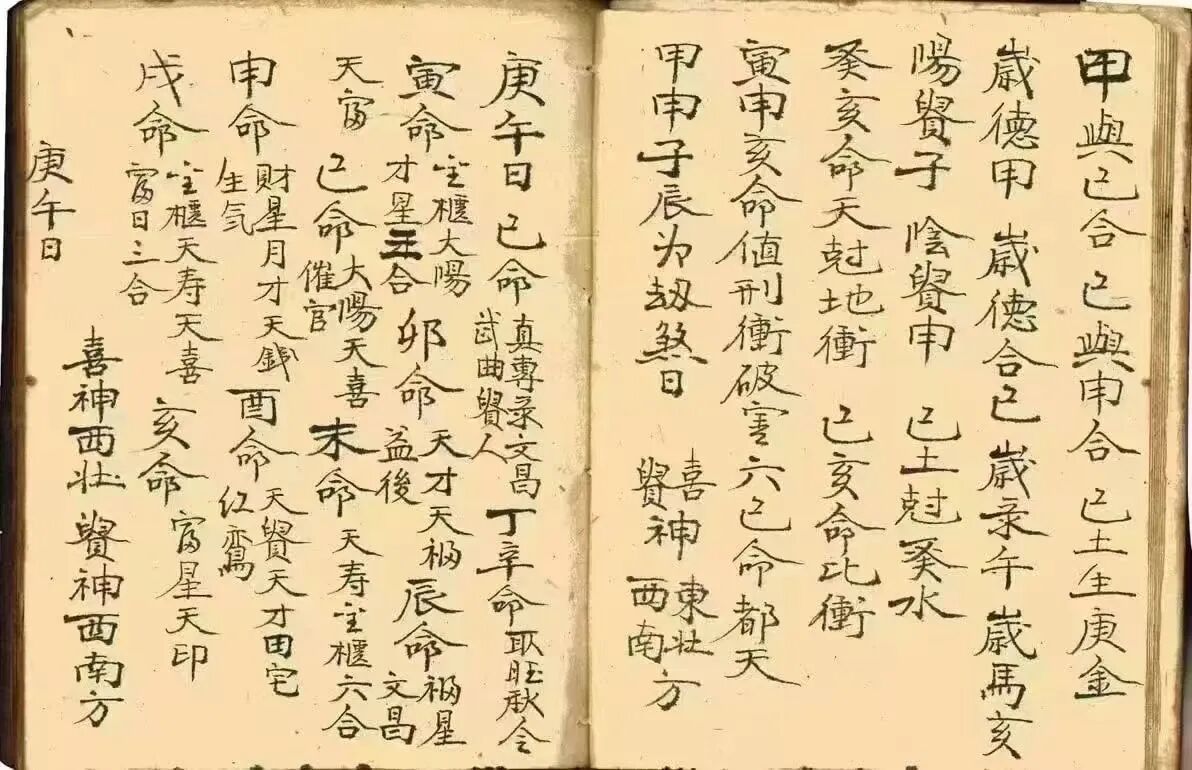 甲與己合 己與甲合 己土生庚金
歲德甲 歲德合己 歲彔午 歲馬亥
陽貴子 陰貴申 己土尅癸水
癸亥命天尅地衝 己亥命比衝
寅申亥命值刑衝破害六己命都天
甲申子辰为劫煞日 喜神東北 貴神西南方
庚午日己命 真專彔文昌 武曲貴人 丁辛命取旺秋令
寅命 金櫃大陽 才星三合 卯命 天才天福 益後 辰命 福星 文昌
天富 巳命 大陽天喜 催官 未命 天寿金櫃六合
申命 財星月才天钱 生気 酉命 天貴天才田宅 红鸞
戌命 金櫃天寿天喜 富日三合 亥命 富星天印
喜神西北 貴神西南方
庚午日